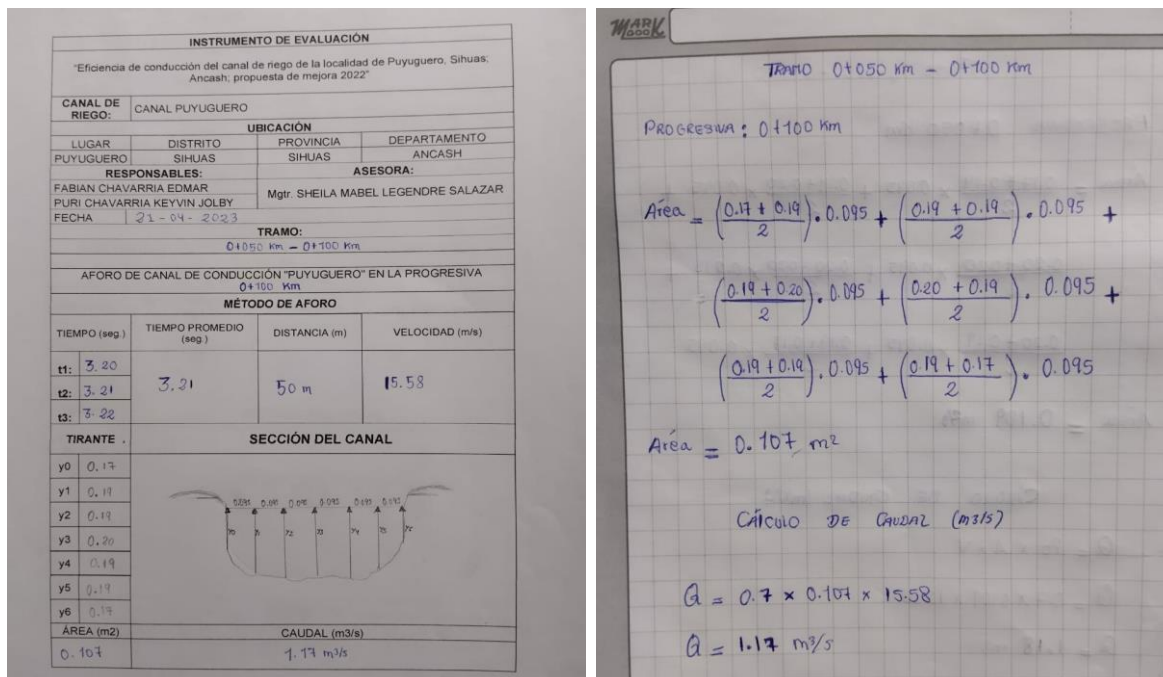 INSTRUMENTO DE EVALUACIÓN
"Eficiencia de conducción del canal de riego de la localidad de Puyuguero, Sihuas;
Ancash; propuesta de mejora 2022"
CANAL DE RIEGO: CANAL PUYUGUERO
UBICACIÓN
LUGAR DISTRITO PROVINCIA DEPARTAMENTO
PUYUGUERO SIHUAS SIHUAS ANCASH
RESPONSABLES: ASESORA:
FABIAN CHAVARRIA EDMAR
PURI CHAVARRIA KEYVIN JOLBY
Mgtr. SHEILA MABEL LEGENDRE SALAZAR
FECHA 21-04-2023
TRAMO:
0+050 Km – 0+100 Km
AFORO DE CANAL DE CONDUCCIÓN "PUYUGUERO" EN LA PROGRESIVA
0+100 Km
MÉTODO DE AFORO
TIEMPO (seg.) TIEMPO PROMEDIO (seg.) DISTANCIA (m) VELOCIDAD (m/s)
t1: 3.20
t2: 3.21 3.21 50 m 15.58
t3: 3.22
TIRANTE . SECCIÓN DEL CANAL
y0 0.17
y1 0.19
y2 0.19
y3 0.20
y4 0.19
y5 0.19
y6 0.17
0.095 0.095 0.095 0.095 0.095 0.095
ÁREA (m2) CAUDAL (m3/s)
0.107 1.17 m3/s
MARK
TRAMO 0+050 Km – 0+100 Km
PROGRESIVA: 0+100 Km
Area = (0.17 + 0.19 / 2) . 0.095 + (0.19 + 0.19 / 2) . 0.095 +
(0.19 + 0.20 / 2) . 0.095 + (0.20 + 0.19 / 2) . 0.095 +
(0.19 + 0.19 / 2) . 0.095 + (0.19 + 0.17 / 2) . 0.095
Area = 0.107 m2
CÁlCULO DE CAUDAL (m3/s)
Q = 0.7 × 0.107 × 15.58
Q = 1.17 m3/s